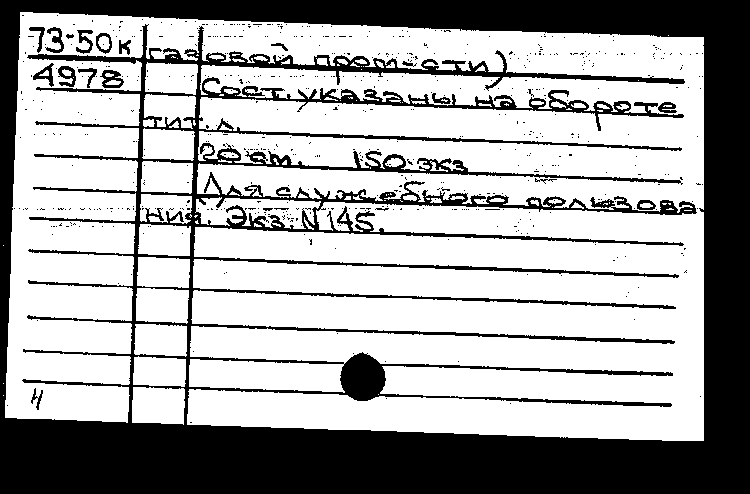 73-50к газовой пром-сти)
4978 Сост. указаны на обороте
тит. л.
20 см. 150 экз
(Для служебного пользова-
ния. Экз. N 145.
4